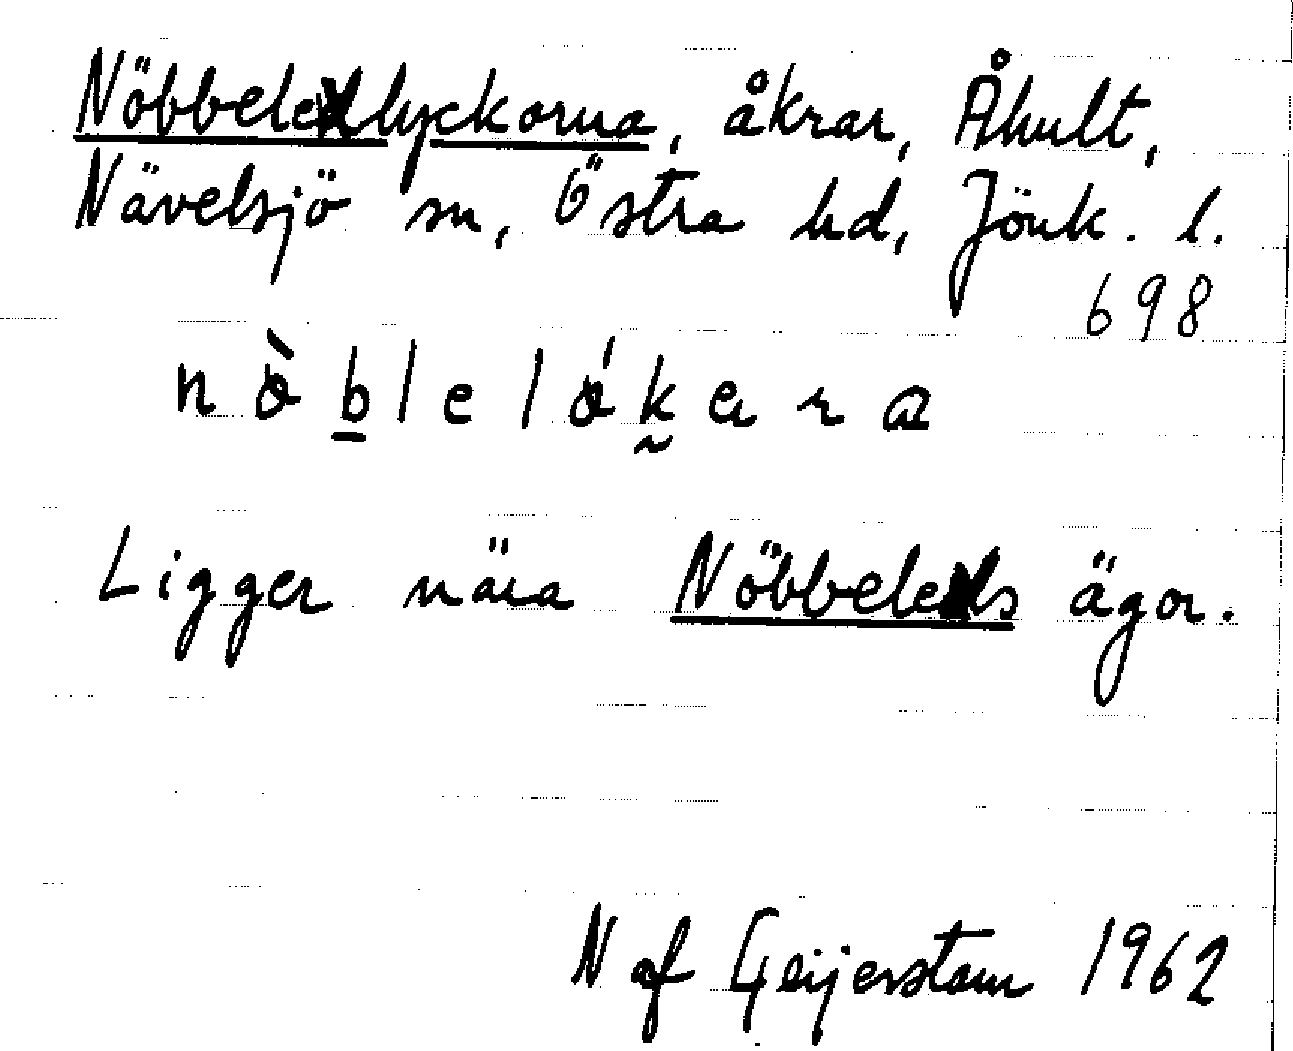 Nöbbelelyckorna, åkrar, Åhult,
Nävelsjö sn, Östra hd, Jönk. l.
698
Ligger nära Nöbbeleds ägor.
N af Geijerstam 1962